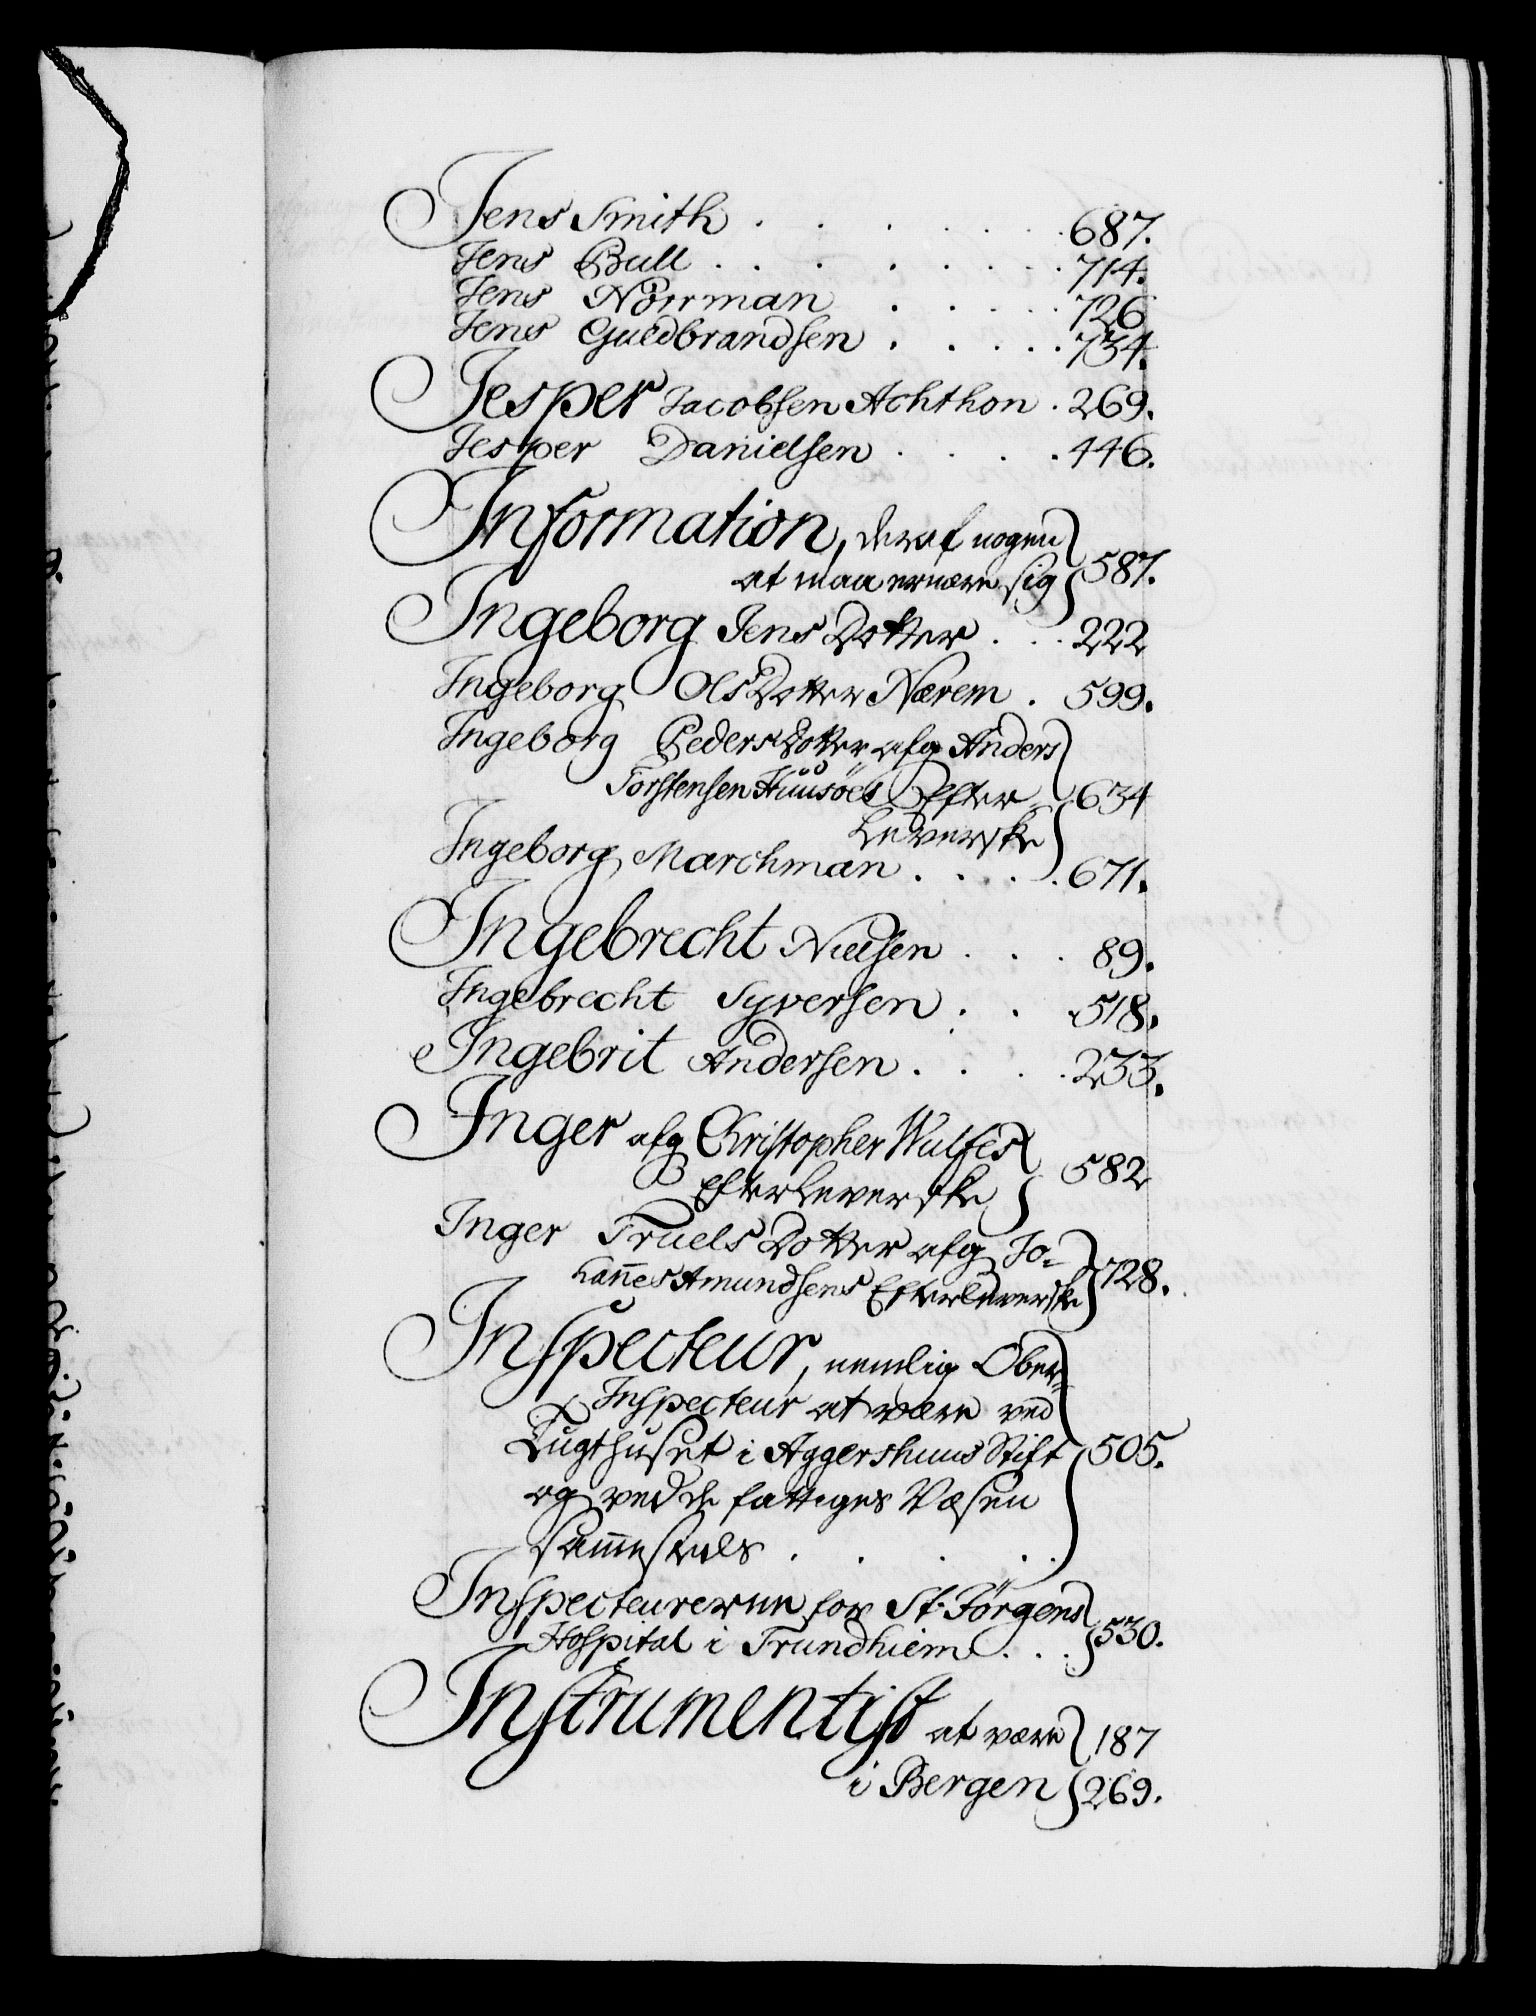 Jens Smith . . . . . . 687.
Jens Bull . . . . . . . 714.
Jens Norrman . . . . 726
Jens Guldbrandsen . . . . . 734.
Jesper Jacobsen Achthon . 269.
Jesper Danielsen . . . . 446.
Information, deraf nogen
at maa ernære sig 587.
Ingeborg Jens Dotter . . . 222
Ingeborg Ols Dotter Nærem . 599.
Ingeborg Peders Dotter afg Anders
Torstensen Huusöes Efter- 634
Leverske
Ingeborg Marchman . . . . . 671.
Ingebrecht Nielsen . . . 89.
Ingebrecht Syversen . . . 518.
Ingebrit Andersen . . . . 233.
Inger afg Christopher Wulfes
Efterleverske 582
Inger Truels Dotter afg Jo-
hañes Amundsens Efterleverske 728.
Inspecteur, nemlig Ober-
Inspecteur at være ved
Tugthuset i Aggershuus Stift 505.
og ved de fattiges Væsen
sam̃esteds . . . .
Inspecteurerne for St. Jörgens
Hospital i Trundhiem . . . 530.
Instrumentist at være 187
i Bergen 269.